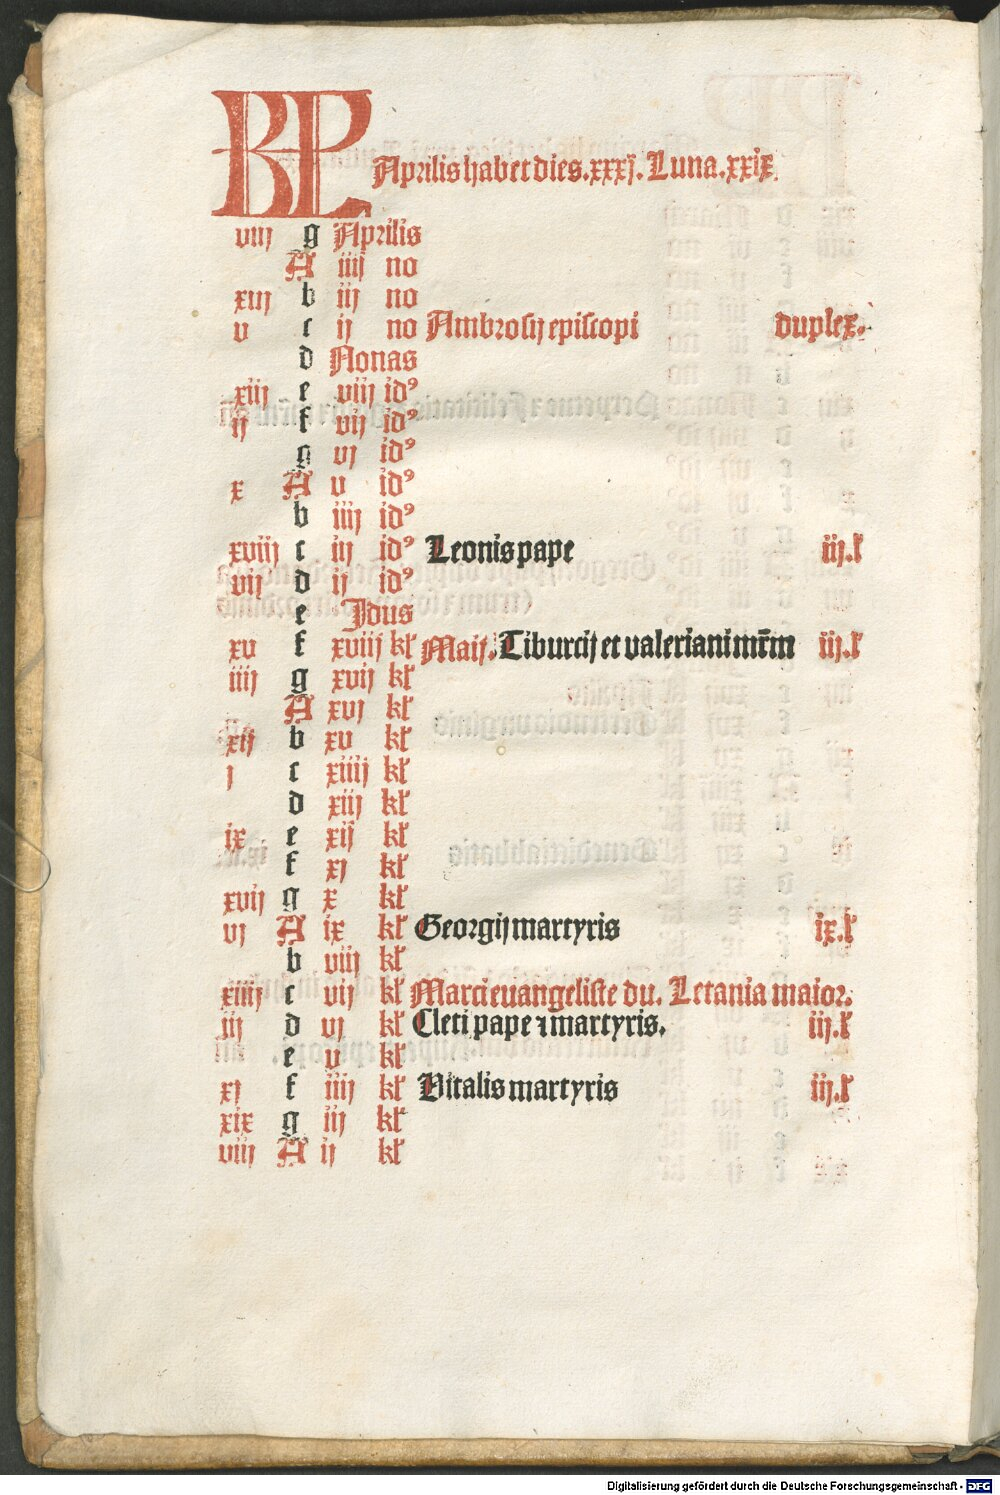 KL Aprilis habet dies .xxxj. Luna .xxix.
viij g Aprilis
A iiij no
xvj b iij no
v c ij no Ambrosij episcopi duplex.
d Nonas
xiij e viij idꝰ
ij f vij idꝰ
g vj idꝰ
x A v idꝰ
b iiij idꝰ
xviij c iij idꝰ Leonis pape iij.ł
vij d ij idꝰ
e Idus
xv f xviij kł Maij. Tiburcij et valeriani mr̄m iij.ł
iiij g xvij kł
A xvj kł
xij b xv kł
j c xiiij kł
d xiij kł
ix e xij kł
f xj kł
xvij g x kł
vj A ix kł Georgij martyris ix.ł
b viij kł
xiiij c vij kł Marci euangeliste du. Letania maior.
iij d vj kł Cleti pape ⁊ martyris. iij.ł
e v kł
xj f iiij kł Vitalis martyris iij.ł
xix g iij kł
viij A ij kł
Digitalisierung gefördert durch die Deutsche Forschungsgemeinschaft - DFG